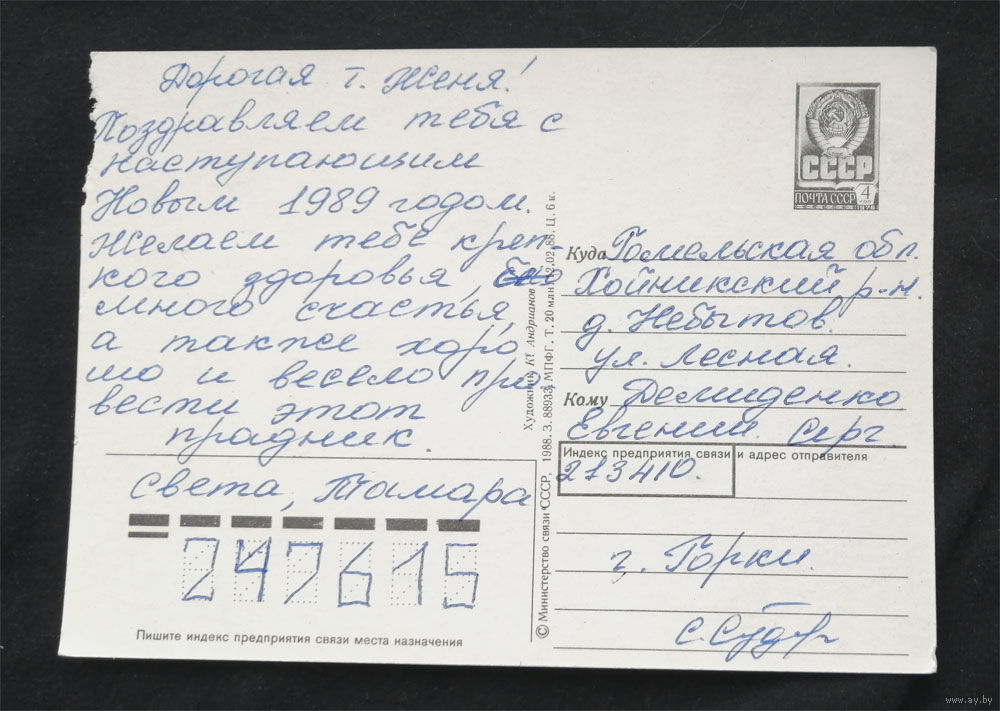 Дорогая т. Женя!
Поздравляем тебя с
наступающим
Новым 1989 годом.
Желаем тебе креп-
кого здоровья,
много счастья,
а также хоро
шо и весело про
вести этот
праздник.
Света, Тамара
247615
Пишите индекс предприятия связи места назначения
© Министерство связи СССР, 1988. З. 88933. МПФГ. Т. 20 млн. 12.02.88. Ц. 6 к.
Художник Андрианов
СССР
ПОЧТА СССР
4
КОП
1978
Куда Гомельская обл.
Хойникский р-н.
д. Небытов.
ул. Лесная.
Кому Демиденко
Евгении Серг.
Индекс предприятия связи и адрес отправителя
213410.
г. Горки.
www.ay.by